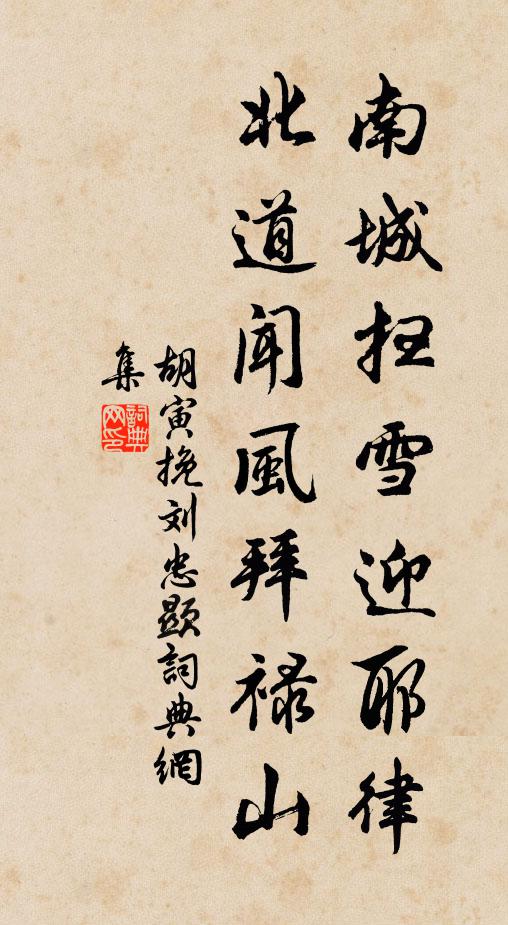 南城扫雪迎耶律
北道闻風拜禄山
胡寅挽刘忠顕詞典網
集
詞典
网印